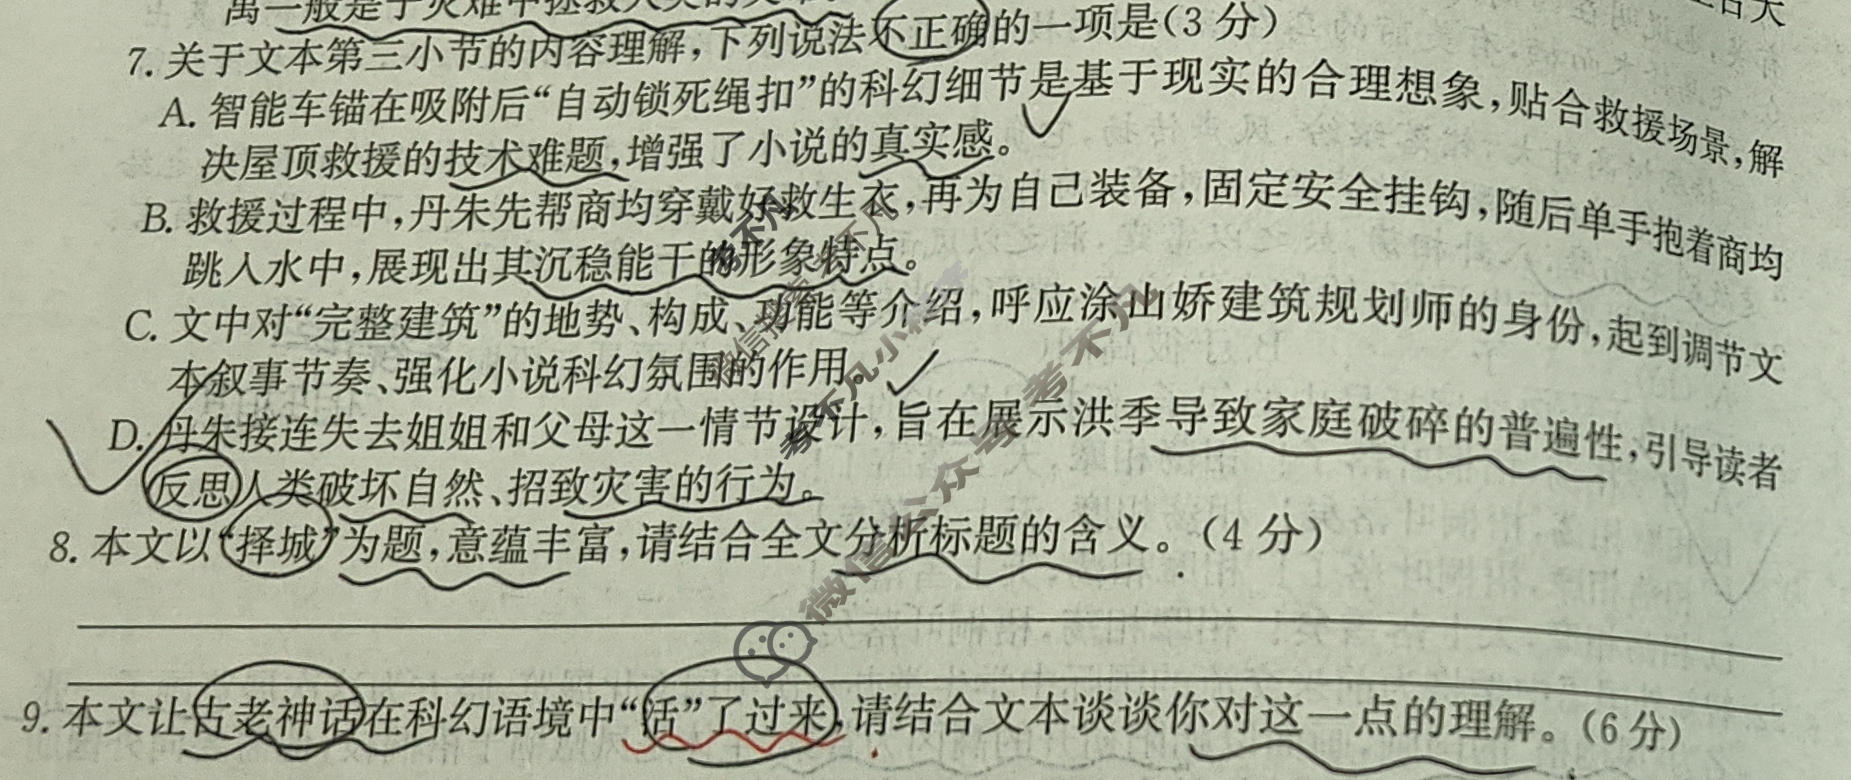 禹一般是于灾难中拯救人类的英雄。
7. 关于文本第三小节的内容理解,下列说法不正确的一项是(3分)
A. 智能车锚在吸附后“自动锁死绳扣”的科幻细节是基于现实的合理想象,贴合救援场景,解
决屋顶救援的技术难题,增强了小说的真实感。
B. 救援过程中,丹朱先帮商均穿戴好救生衣,再为自己装备,固定安全挂钩,随后单手抱着商均
跳入水中,展现出其沉稳能干的形象特点。
C. 文中对“完整建筑”的地势、构成、功能等介绍,呼应涂山娇建筑规划师的身份,起到调节文
本叙事节奏、强化小说科幻氛围的作用。
D. 丹朱接连失去姐姐和父母这一情节设计,旨在展示洪季导致家庭破碎的普遍性,引导读者
反思人类破坏自然、招致灾害的行为。
8. 本文以“择城”为题,意蕴丰富,请结合全文分析标题的含义。(4分)
9. 本文让古老神话在科幻语境中“活”了过来,请结合文本谈谈你对这一点的理解。(6分)
考不凡
微信搜索 考不凡
考不凡小程序
微信公众号 考不凡